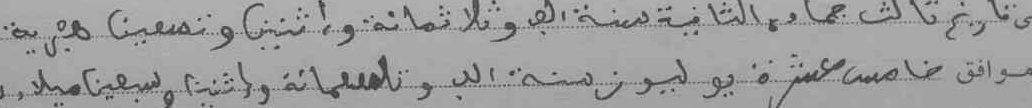 في تاريخ ثالث جماد الثانية سنة الف وثلاثمائة واثنين وتسعين هجرية
موافق خامس عشرة يوليو ز سنة الف وتسعمائة واثنين وسبعين ميلاد